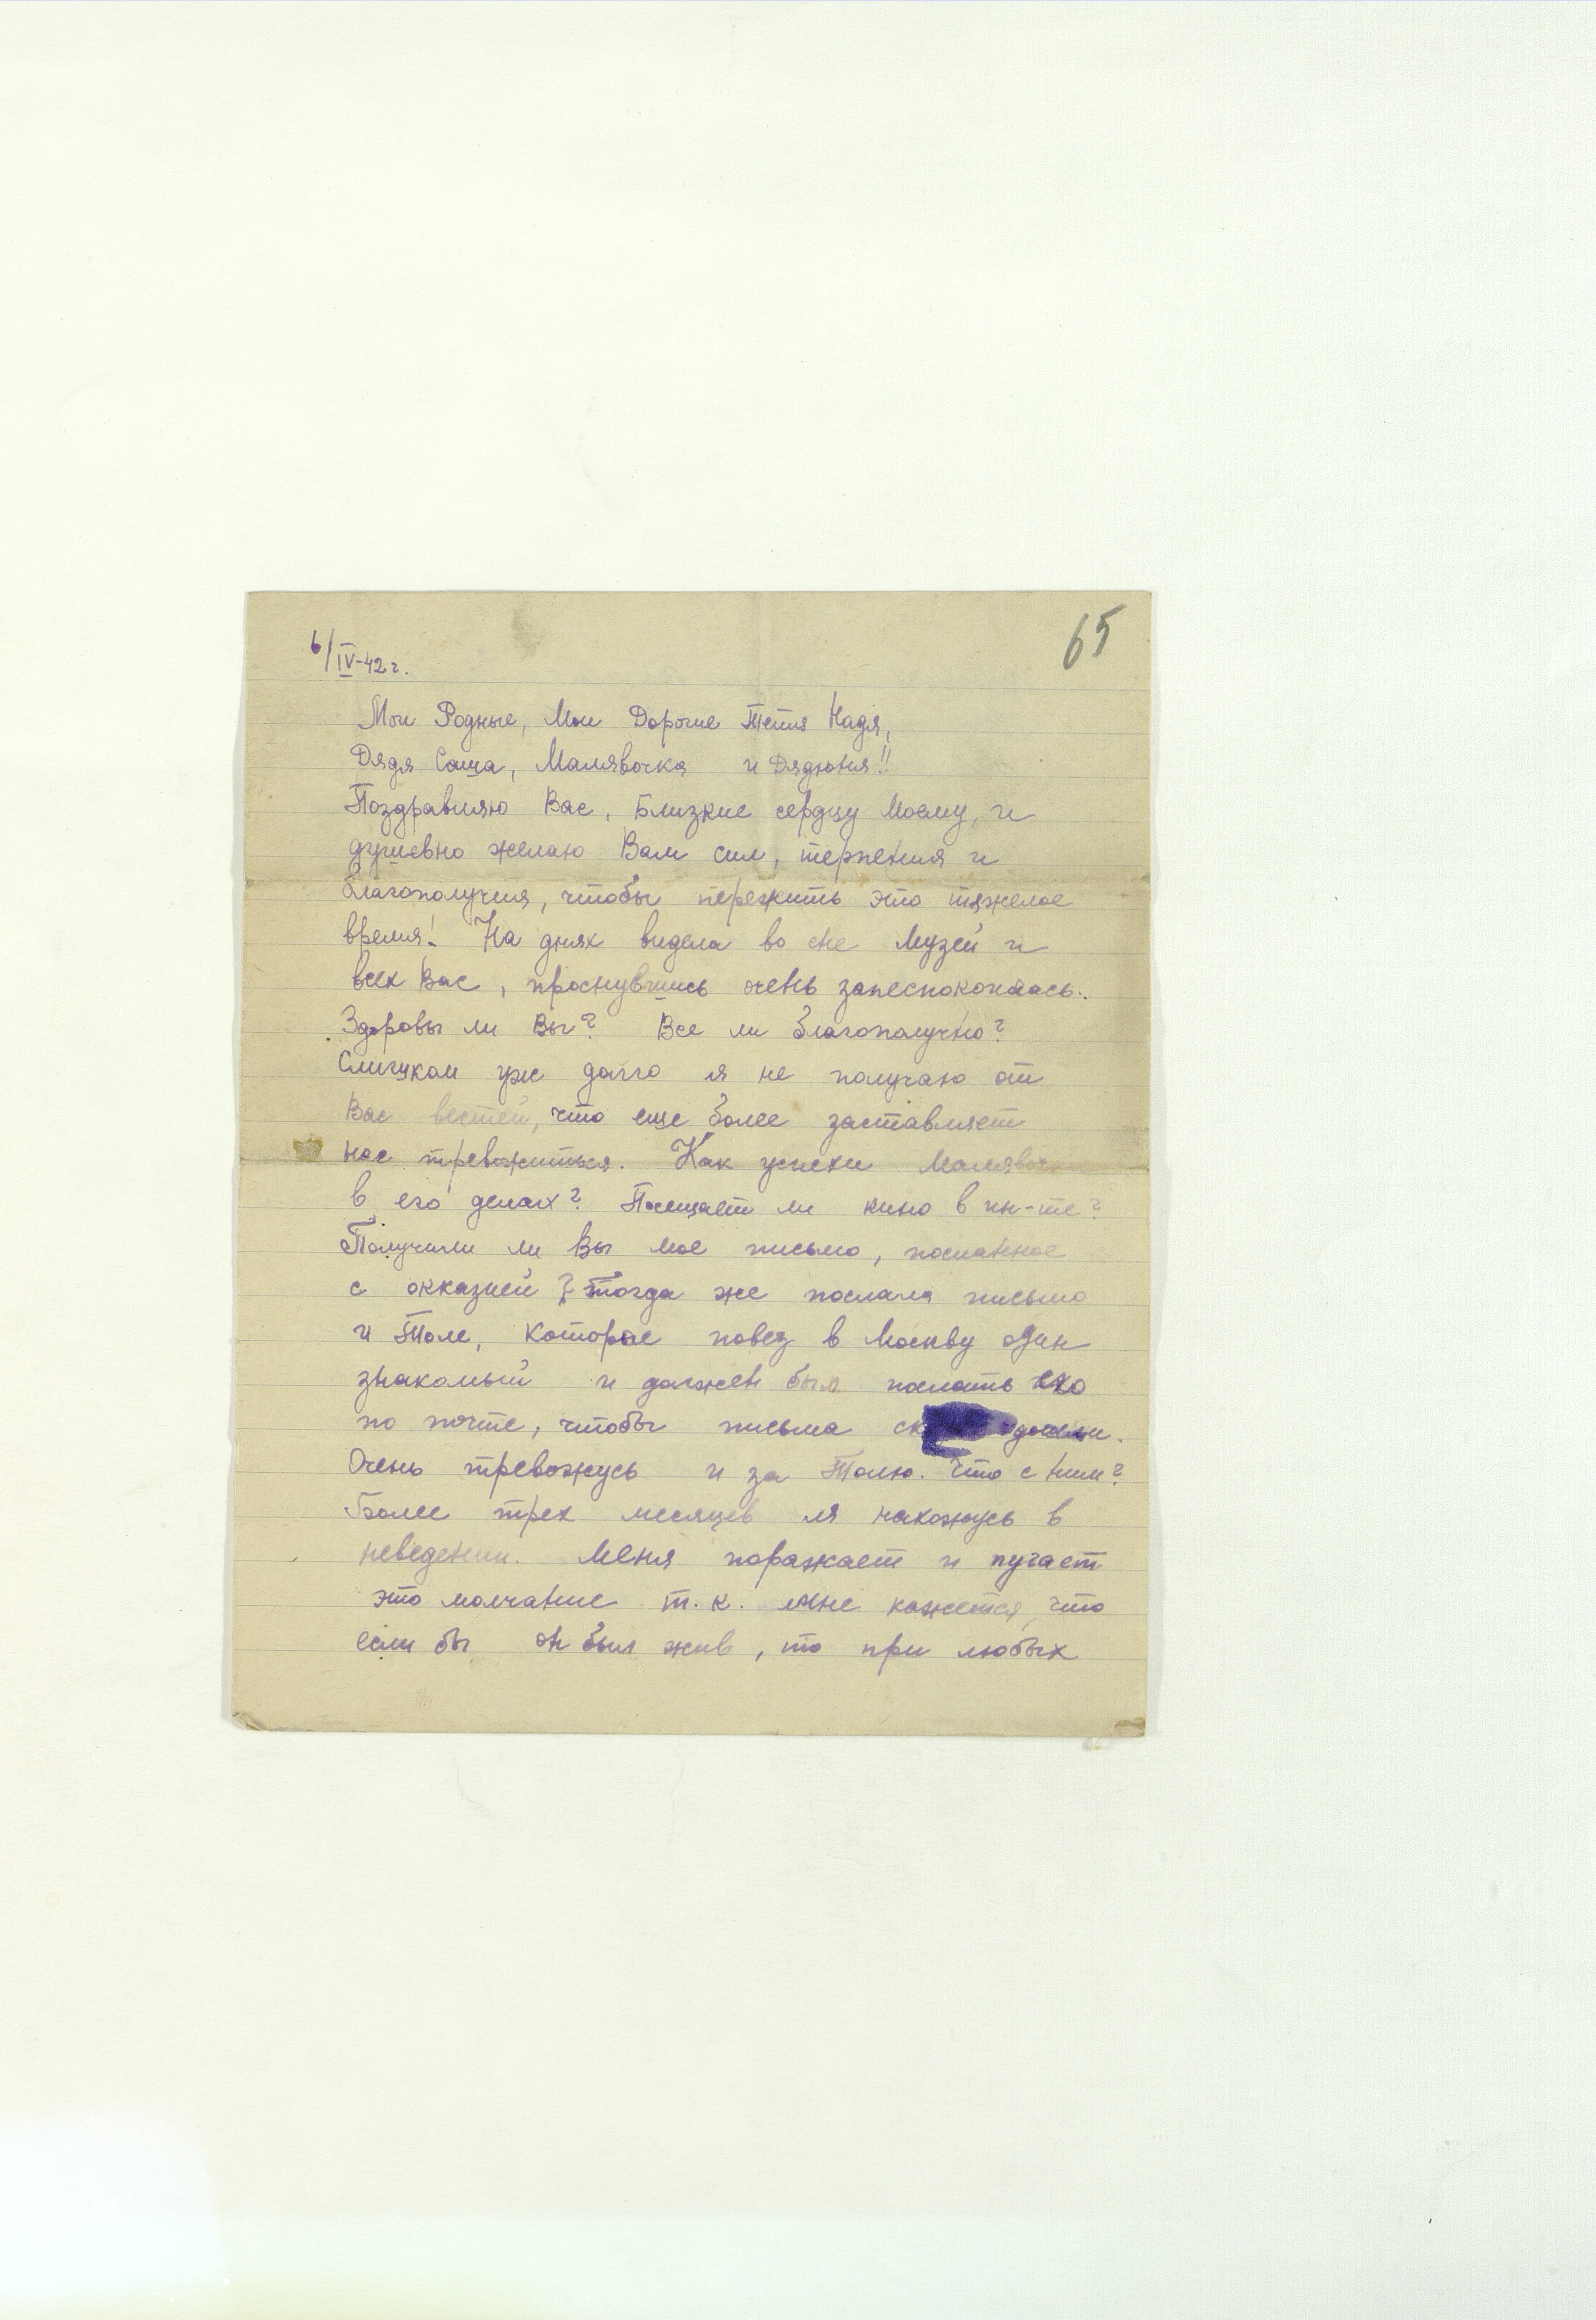 65
6/IV-42 г.
Мои Родные, Мои Дорогие Тетя Надя,
Дядя Саша, Малявочка и Дядюня!!
Поздравляю Вас, Близкие сердцу Моему, и
душевно желаю Вам сил, терпения и
благополучия, чтобы пережить это тяжелое
время! На днях видела во сне Музей и
всех Вас, проснувшись очень запеспокоилась.
Здоровы ли Вы? Все ли благополучно?
Слишком уж долго я не получаю от
Вас вестей, что еще более заставляет
нас тревожиться. Как успехи Малявочки
в его делах? Посещает ли кино в ин-те?
Получили ли Вы мое письмо, посланное
с окказией? Тогда же послала письмо
и Толе, которое повез в Москву один
знакомый и должен был послать его
по почте, чтобы письма дошли.
Очень тревожусь и за Толю. Что с ним?
Более трех месяцев я нахожусь в
неведении. Меня поражает и пугает
это молчание т.к. мне кажется, что
если бы он был жив, то при любых